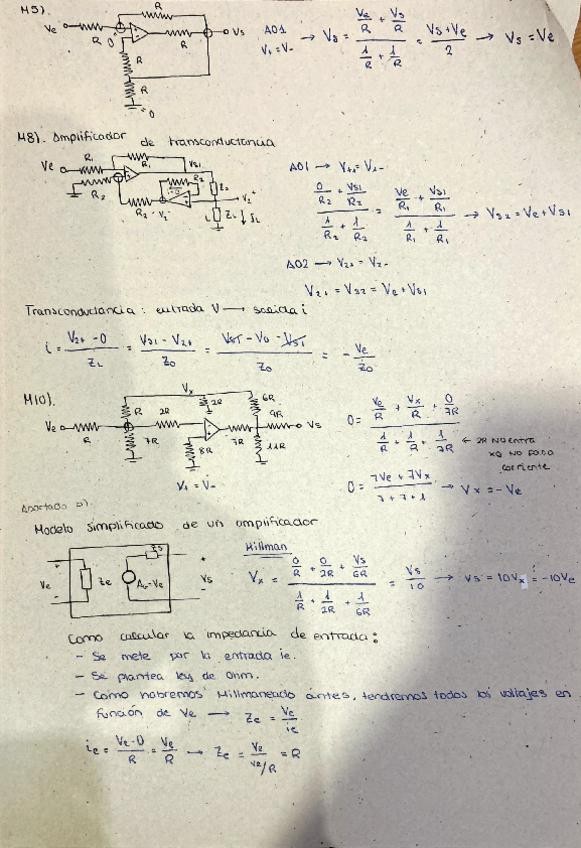 M5).
R
Ve
R
0
R
Vs
R
R
0
AO1
V+ = V-
→ V0 = (Ve/R + Vs/R) / (1/R + 1/R) = (Vs+Ve)/2 → Vs = Ve
M8). Amplificador de transconductancia
Ve
R1
R1
Vs1
R2
R2
Z0
ZL
AO1 → V1+ = V1-
(0/R2 + Vs2/R2) / (1/R2 + 1/R2) = (Ve/R1 + Vs1/R1) / (1/R1 + 1/R1) → Vs2 = Ve + Vs1
AO2 → V2+ = V2-
V2+ = Vs2 = Ve + Vs1
Transconductancia : entrada V → salida i
i = (V2+ - 0)/ZL = (Vs1 - V2+)/Z0 = (Vs1 - Ve - Vs1)/Z0 = - Ve/Z0
M10).
Vx
2R
6R
R
2R
9R
Ve
R
7R
8R
7R
11R
Vs
V+ = V-
0 = (Ve/R + Vx/R + 0/7R) / (1/R + 1/R + 1/7R) ← 2R NO entra
xq NO pasa
corriente
0 = (7Ve + 7Vx) / (7+7+1) → Vx = -Ve
Apartado b).
Modelo simplificado de un amplificador
Ve
Ze
Av·Ve
Zs
Vs
Millman
Vx = (0/R + 0/2R + Vs/6R) / (1/R + 1/2R + 1/6R) = Vs/10 → Vs = 10Vx = -10Ve
Como calcular la impedancia de entrada:
- Se mete por la entrada ie.
- Se plantea ley de Ohm.
- Como habremos Millmaneado antes, tendremos todos los voltajes en
función de Ve → Ze = Ve/ie
ie = (Ve-0)/R = Ve/R → Ze = Ve/(Ve/R) = R